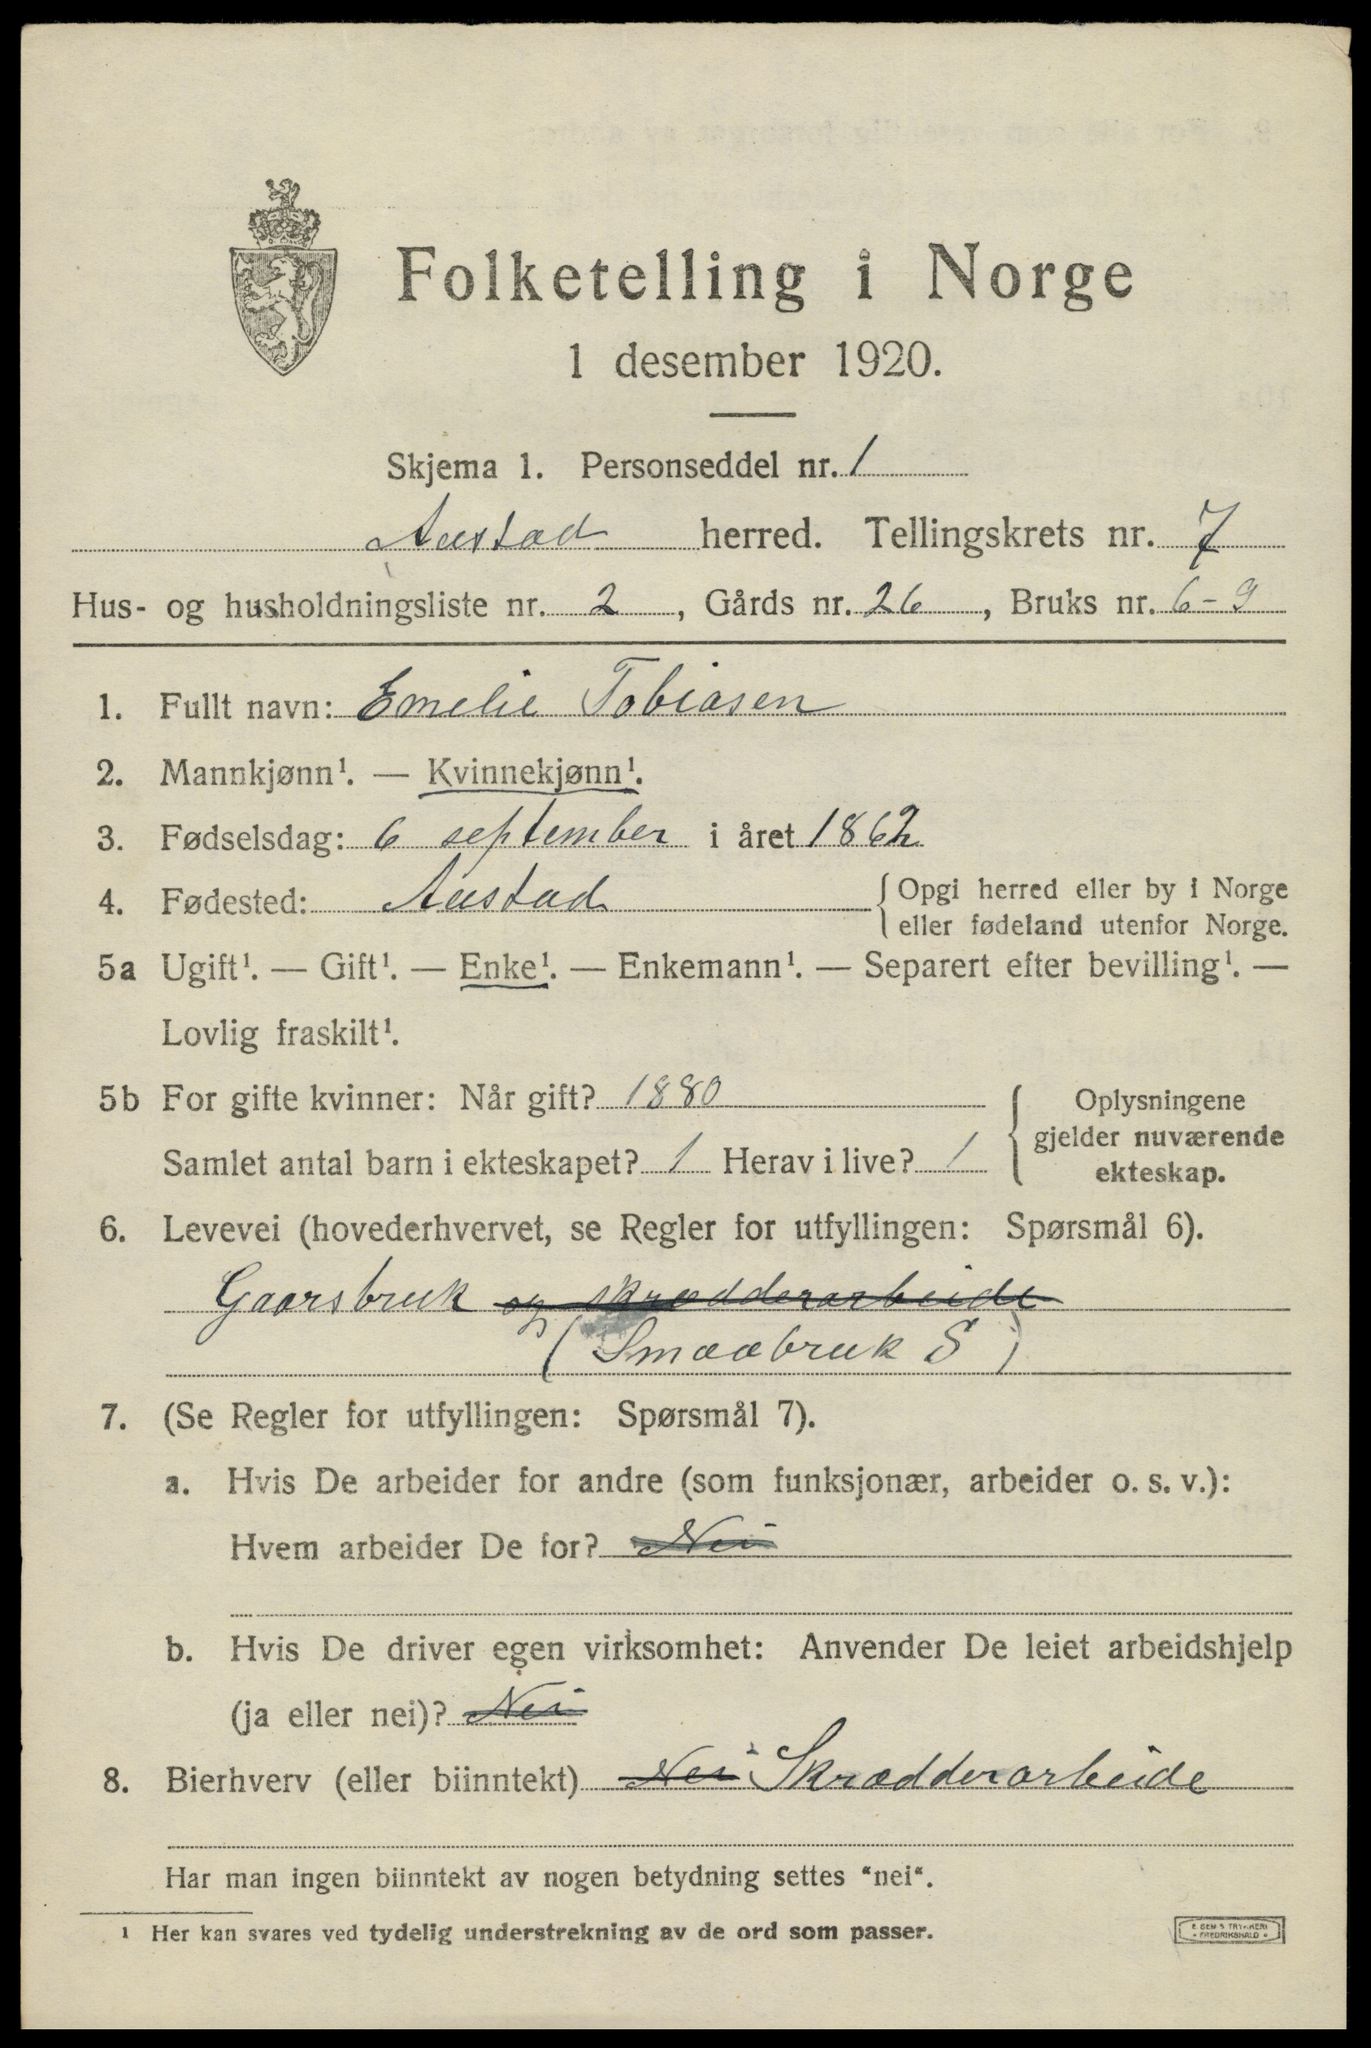 Folketelling i Norge
1 desember 1920.
Skjema 1. Personseddel nr. 1
Austad herred. Tellingskrets nr. 7
Hus- og husholdningsliste nr. 2, Gårds nr. 26, Bruks nr. 6-9
1. Fullt navn: Emelie Tobiasen
2. Mannkjønn¹. — Kvinnekjønn¹.
3. Fødselsdag: 6 september i året 1862
4. Fødested: Austad { Opgi herred eller by i Norge
eller fødeland utenfor Norge.
5a Ugift¹. — Gift¹. — Enke¹. — Enkemann¹. — Separert efter bevilling¹. —
Lovlig fraskilt¹.
5b For gifte kvinner: Når gift? 1880
Samlet antal barn i ekteskapet? 1 Herav i live? 1
{ Oplysningene
gjelder nuværende
ekteskap.
6. Levevei (hovederhvervet, se Regler for utfyllingen: Spørsmål 6).
Gaarsbruk og skrædderarbeide
(Smaabruk S)
7. (Se Regler for utfyllingen: Spørsmål 7).
a. Hvis De arbeider for andre (som funksjonær, arbeider o. s. v.):
Hvem arbeider De for? Nei
b. Hvis De driver egen virksomhet: Anvender De leiet arbeidshjelp
(ja eller nei)? Nei
8. Bierhverv (eller biinntekt) Nei Skrædderarbeide
Har man ingen biinntekt av nogen betydning settes “nei“.
¹ Her kan svares ved tydelig understrekning av de ord som passer.
E. SEM'S TRYKKERI
• FREDRIKSHALD •